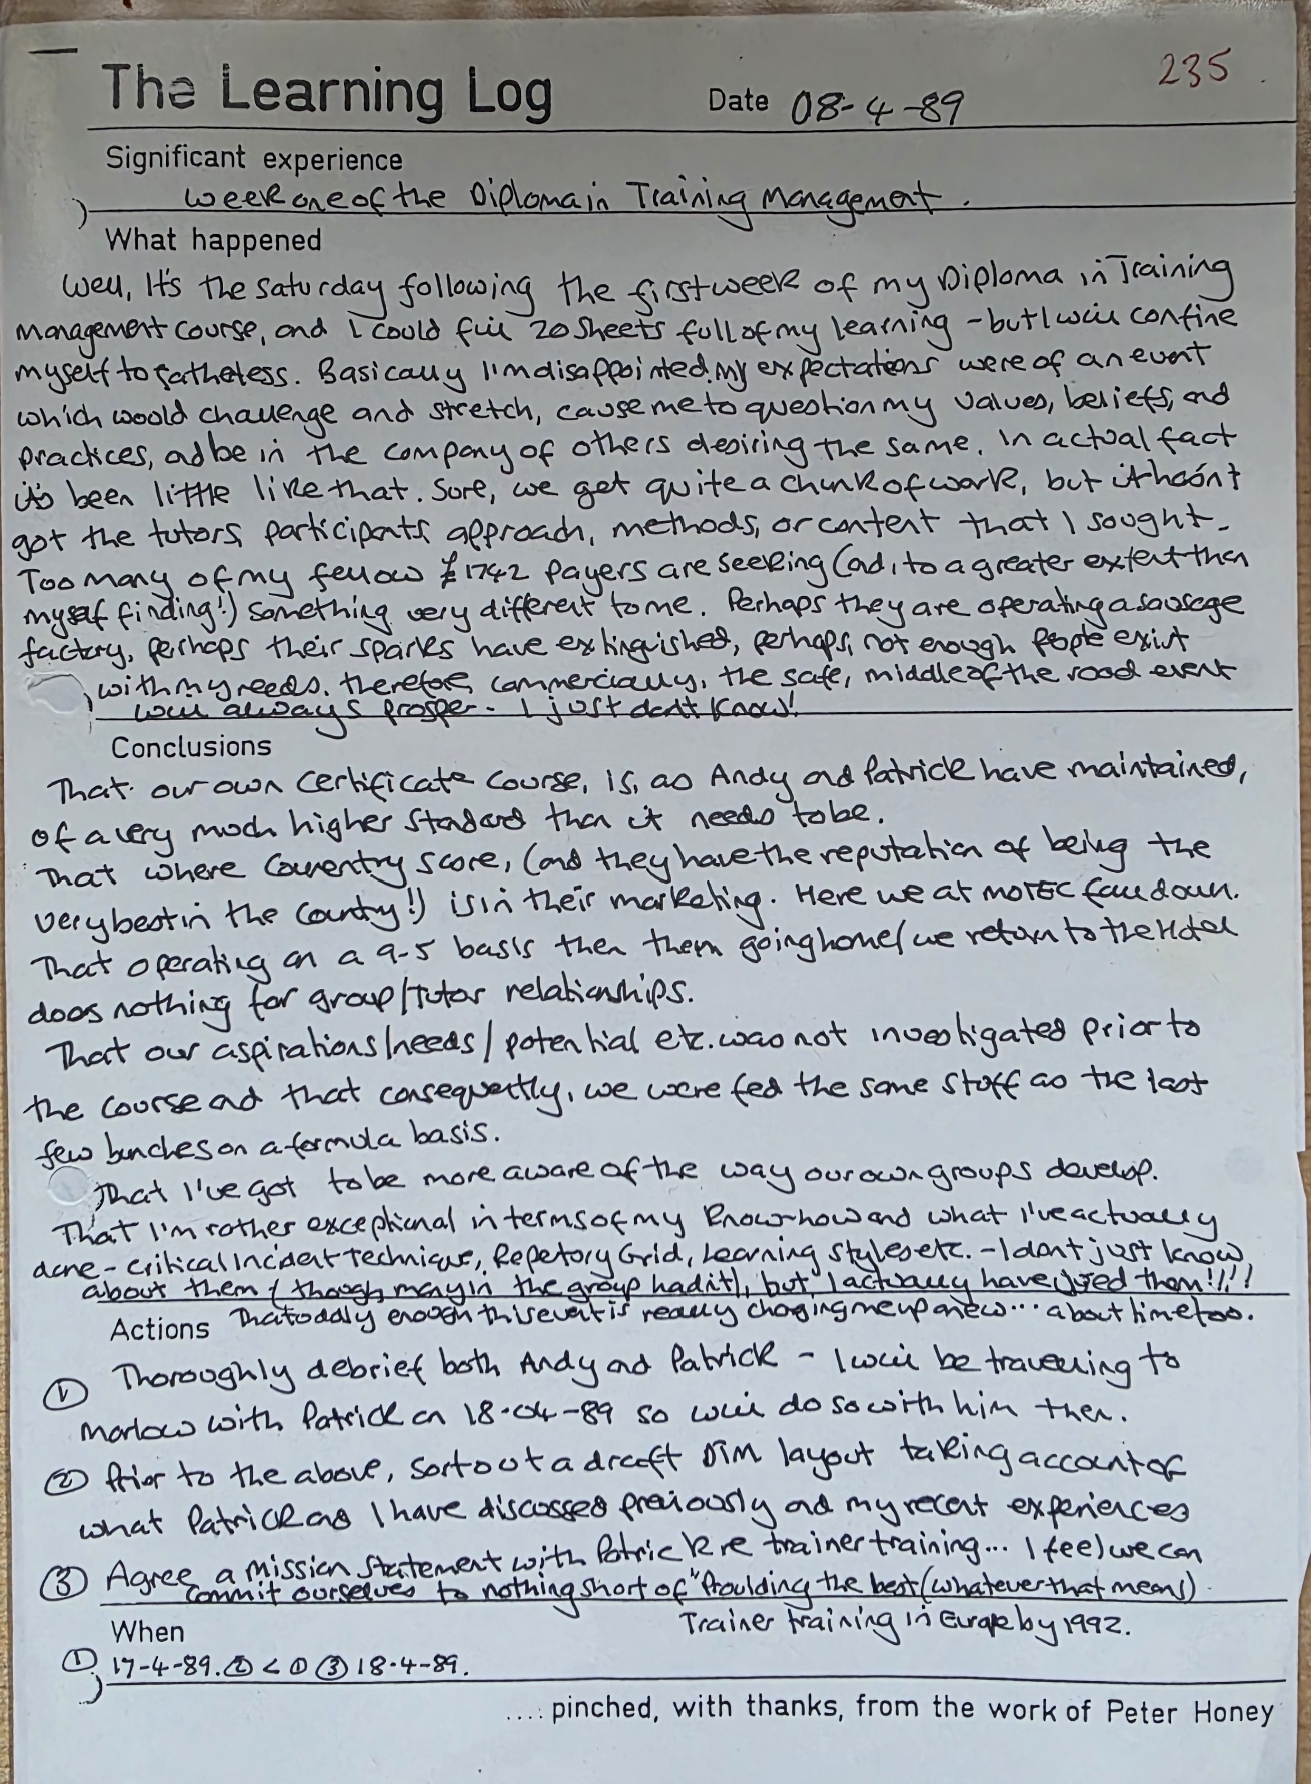 235
The Learning Log
Date 08-4-89
Significant experience
Week one of the Diploma in Training Management.
What happened
Well, It's the saturday following the first week of my Diploma in Training
management course, and I could fill 20 sheets full of my learning - but I will confine
myself to rather less. Basically I'm disappointed. My expectations were of an event
which would challenge and stretch, cause me to question my values, beliefs, and
practices, and be in the company of others desiring the same. In actual fact
it's been little like that. Sure, we get quite a chunk of work, but it hasn't
got the tutors, participants, approach, methods, or content that I sought.
Too many of my fellow £1742 payers are seeking (and, to a greater extent than
myself finding!) something very different to me. Perhaps they are operating a sausage
factory, perhaps their sparks have extinguished, perhaps, not enough people exist
with my needs, therefore, commercially, the safe, middle of the road event
will always prosper - I just don't know!
Conclusions
That our own certificate course, is, as Andy and Patrick have maintained,
of a very much higher standard than it needs to be.
That where Coventry score, (and they have the reputation of being the
very best in the Country!) is in their marketing. Here we at MOTEC fall down.
That operating on a 9-5 basis then them going home/we return to the Hotel
does nothing for group/Tutor relationships.
That our aspirations/needs/potential etc. was not investigated prior to
the course and that consequently, we were fed the same stuff as the last
few bunches on a formula basis.
That I've got to be more aware of the way our own groups develop.
That I'm rather exceptional in terms of my know-how and what I've actually
done - critical Incident Technique, Repetory Grid, Learning styles etc. - I don't just know
about them (though many in the group hadn't), but I actually have used them!!!!
That oddly enough this event is really charging me up anew... about time too.
Actions
① Thoroughly debrief both Andy and Patrick - I will be travelling to
Marlow with Patrick on 18-04-89 so will do so with him then.
② Prior to the above, sort out a draft DTM layout taking account of
what Patrick and I have discussed previously and my recent experiences
③ Agree a mission statement with Patrick re trainer training... I feel we can
commit ourselves to nothing short of "Providing the best (whatever that means)
Trainer training in Europe by 1992.
When
① 17-4-89. ② < ① ③ 18-4-89.
....pinched, with thanks, from the work of Peter Honey